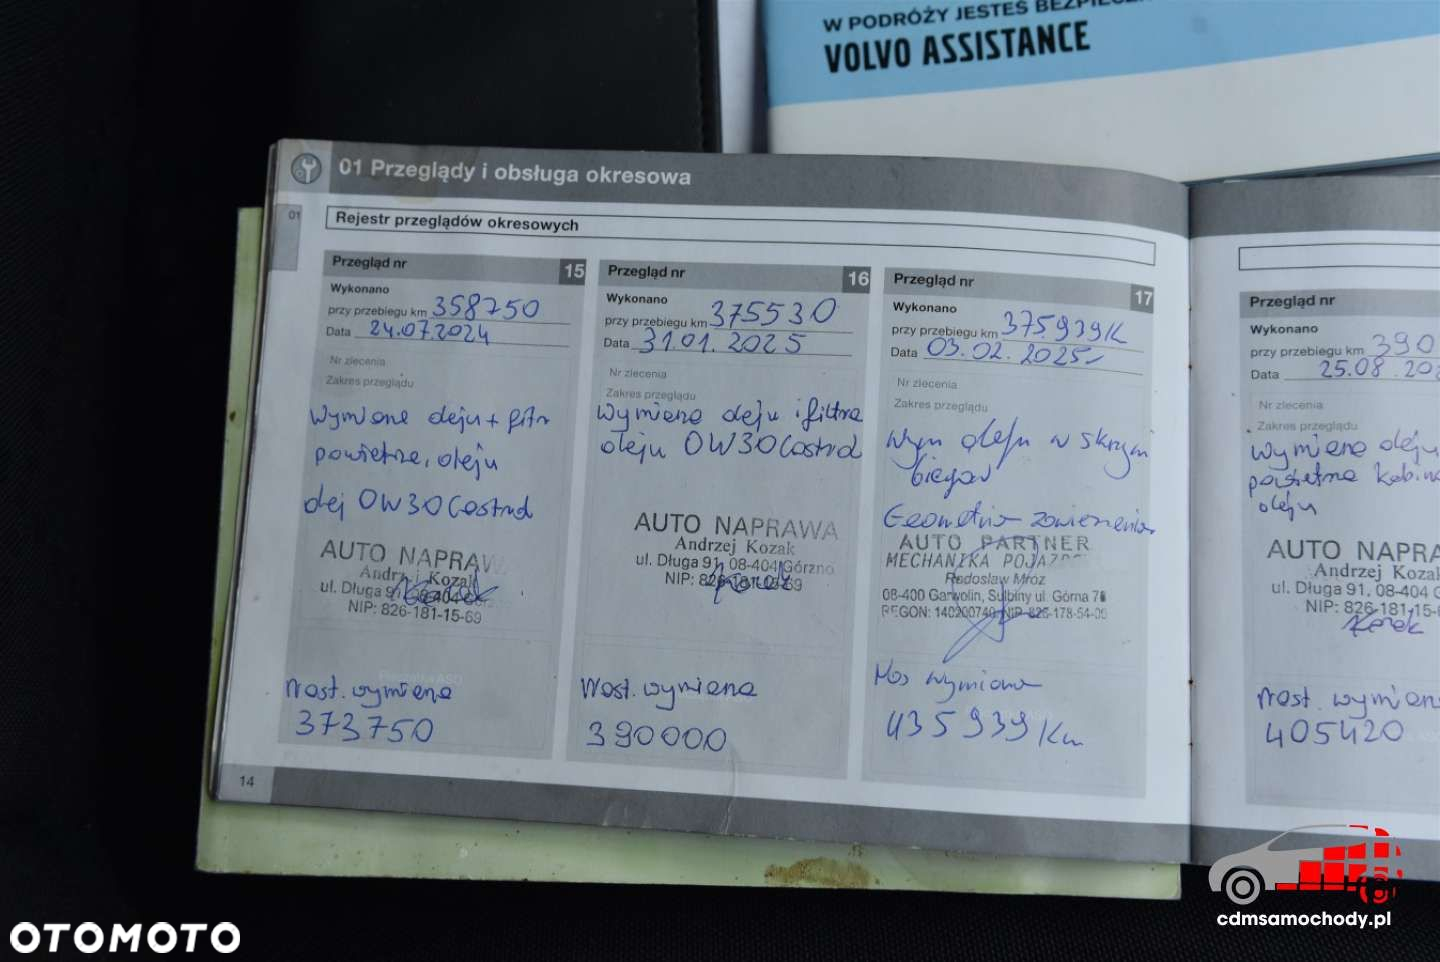 W PODRÓŻY JESTEŚ
VOLVO ASSISTANCE
01 Przeglądy i obsługa okresowa
01
Rejestr przeglądów okresowych
Przegląd nr 15
Wykonano
przy przebiegu km 358750
Data 24.07.2024
Nr zlecenia
Zakres przeglądu
Wymiana oleju + filtr
powietrza, oleju
olej 0W30 Castrol
AUTO NAPRAW
Andrzej Kozak
ul. Długa 91, 08-404
NIP: 826-181-15-69
Nast. wymiana
373750
Przegląd nr 16
Wykonano
przy przebiegu km 375530
Data 31.01.2025
Nr zlecenia
Zakres przeglądu
Wymiana oleju i filtra
oleju 0W30 Castrol
AUTO NAPRAWA
Andrzej Kozak
ul. Długa 91, 08-404 Górzno
NIP: 826-181-15-69
Nast. wymiana
390000
Przegląd nr 17
Wykonano
przy przebiegu km 375939K
Data 03.02.2025r
Nr zlecenia
Zakres przeglądu
Wym oleju w skrzyni
biegów
Geometria zawieszenia
AUTO PARTNER
MECHANIKA POJAZD
Radosław Mróz
08-400 Garwolin, Sulbiny ul. Górna 78
REGON: 140200740 NIP 826-178-54-05
Nas wymiana
435939 Km
14
Przegląd nr
Wykonano
przy przebiegu km 390
Data 25.08.20
Nr zlecenia
Zakres przeglądu
Wymiana oleju
powietrza
oleju
AUTO NAPRA
Andrzej Kozak
ul. Długa 91, 08-404
NIP: 826-181-15-6
Kozak
Nast. wymiana
405420
OTOMOTO
cdmsamochody.pl